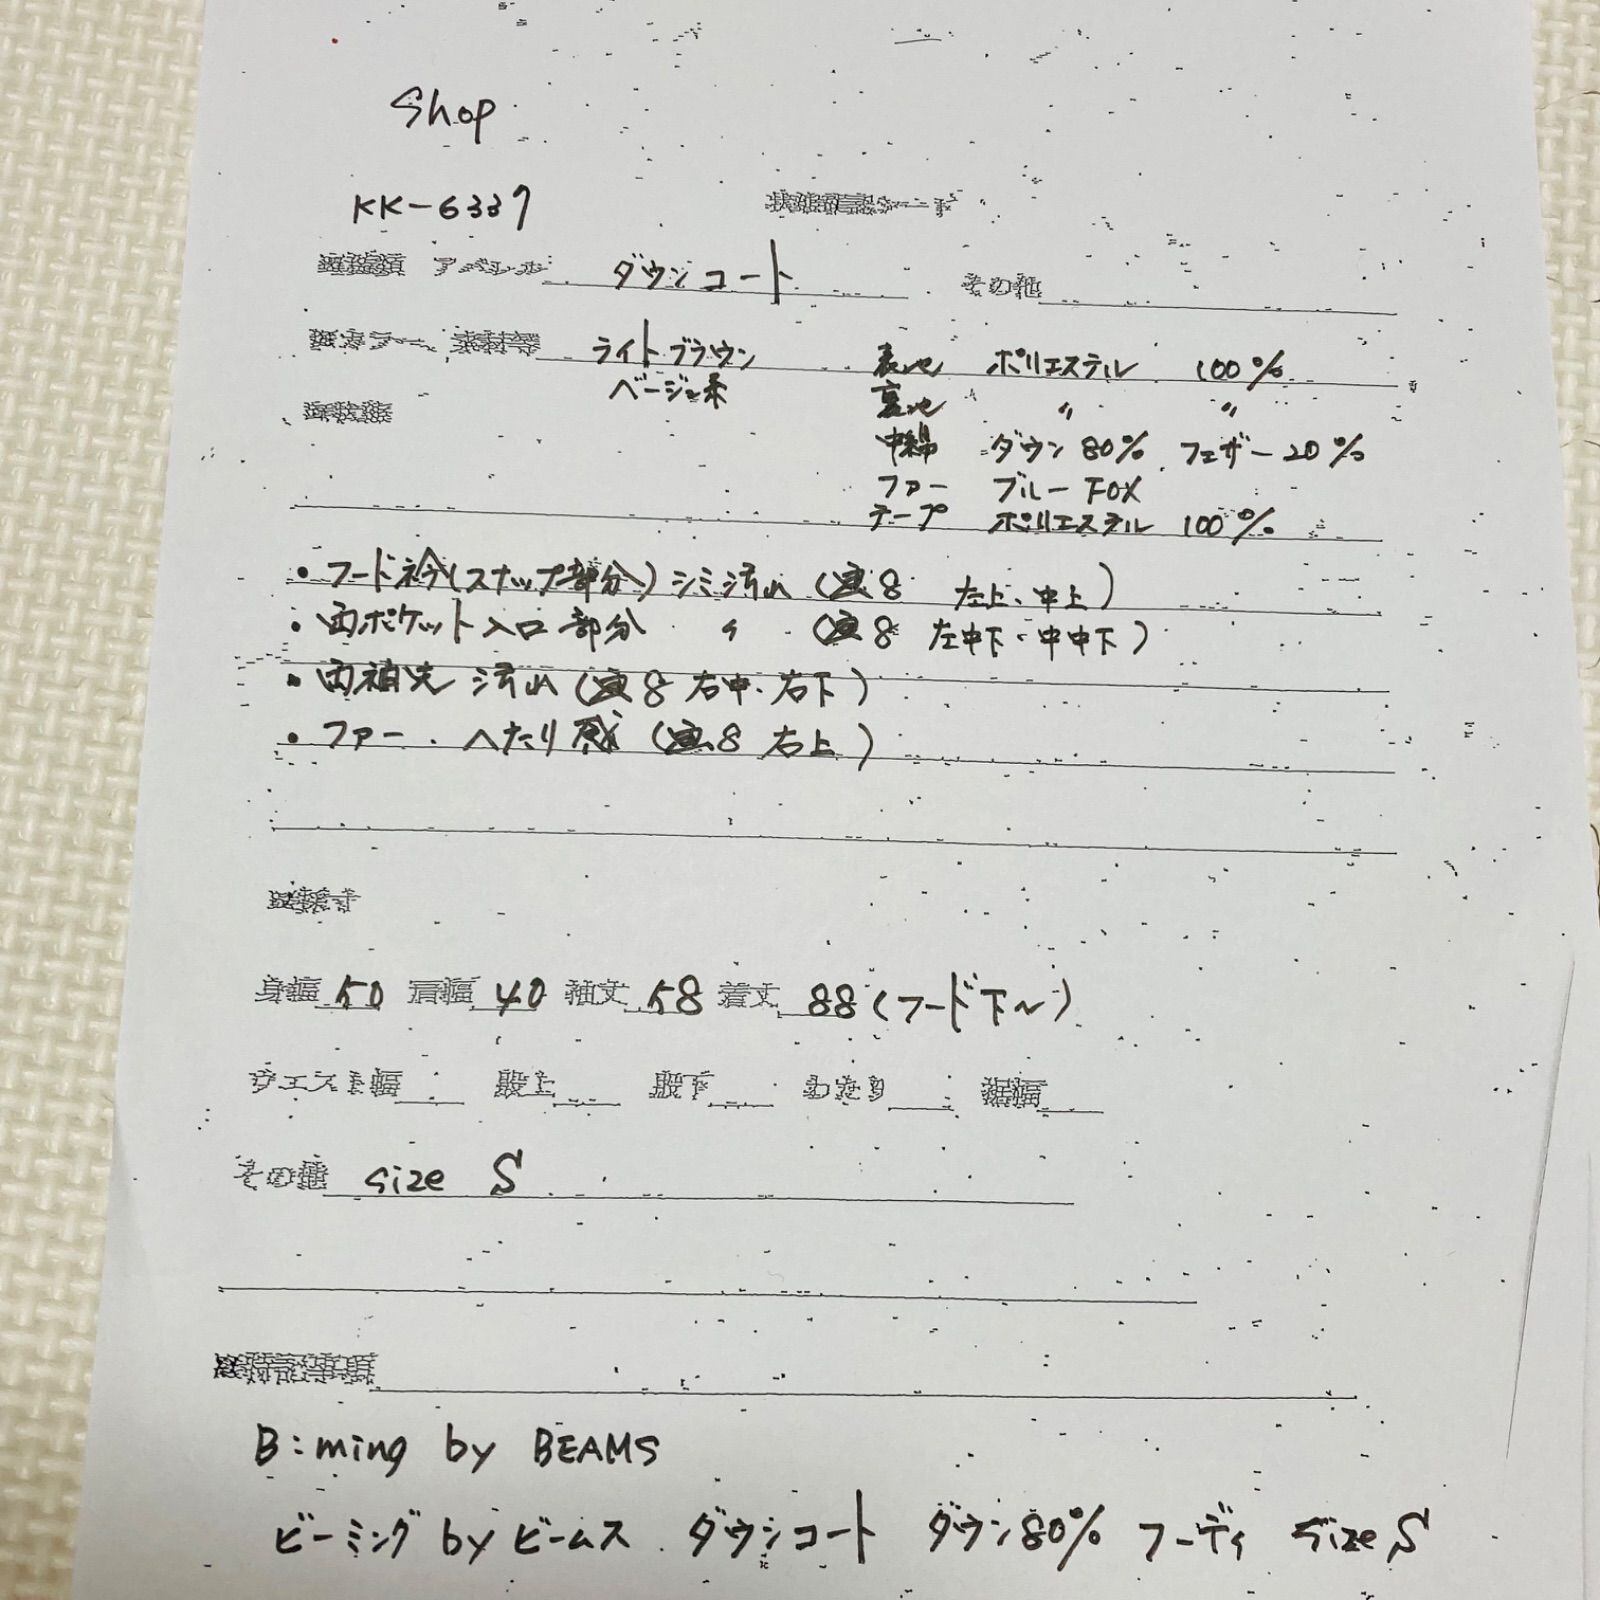 Shop
KK-6337 状態確認シート
アパレル ダウンコート その他
カラー、素材等 ライトブラウン 表地 ポリエステル 100%
ベージュ系 裏地 〃 〃
中綿 ダウン 80% フェザー 20%
ファー ブルーFOX
テープ ポリエステル 100%
・フード衿(スナップ部分)シミ汚れ(画8 左上、中上)
・両ポケット入口部分 〃 (画8 左中下・中中下)
・両袖先 汚れ(画8 右中・右下)
・ファー ヘたり感(画8 右上)
採寸
身幅 50 肩幅 40 袖丈 58 着丈 88(フード下~)
ウエスト幅 股上 股下 わたり 裾幅
その他 size S
特記事項
B:ming by BEAMS
ビーミング by ビームス ダウンコート ダウン80% フーディ size S